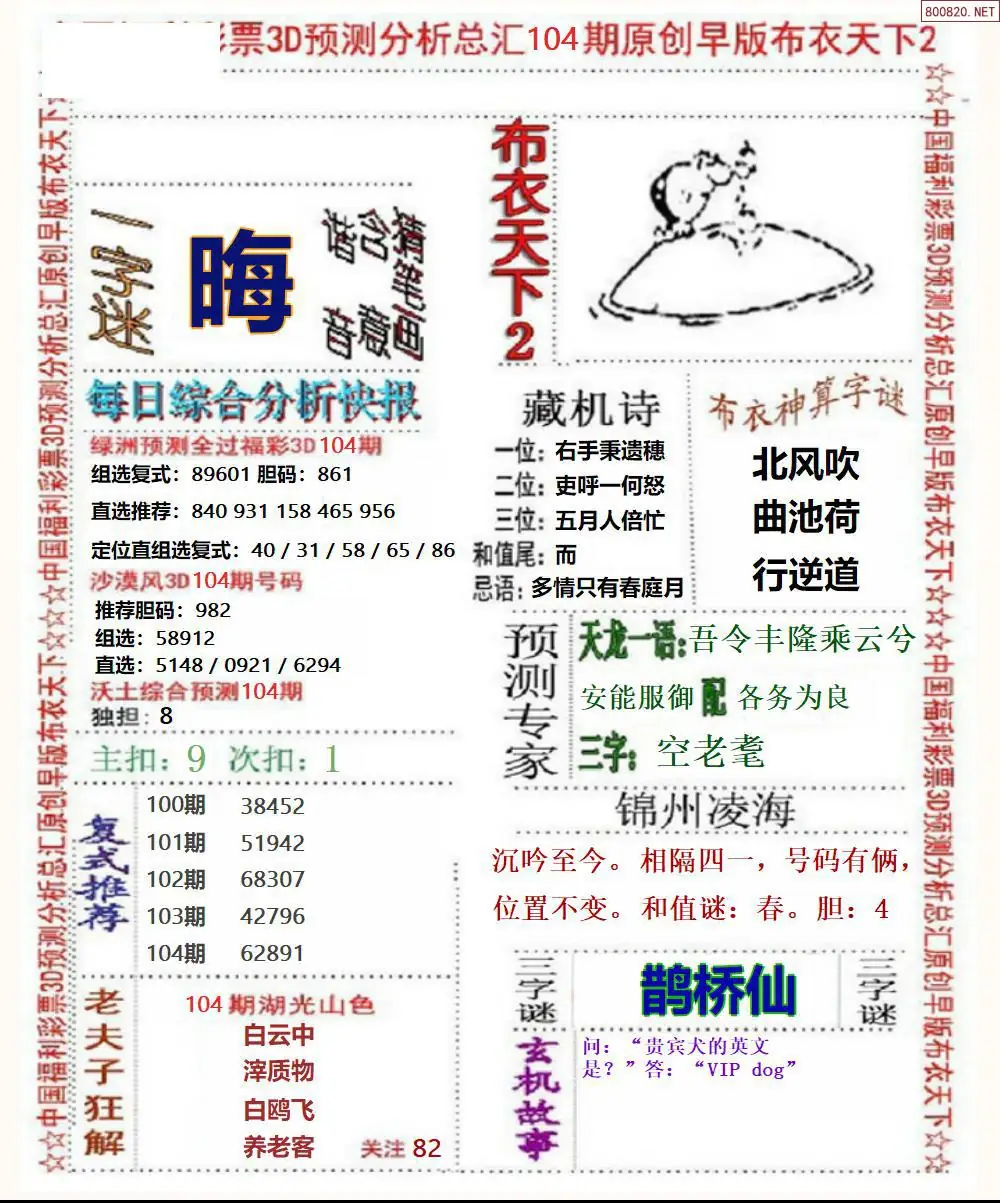 800820.NET
彩票3D预测分析总汇104期原创早版布衣天下2
☆☆中国福利彩票3D预测分析总汇原创早版布衣天下☆☆☆中国福利彩票3D预测分析总汇原创早版布衣天下☆
一字迷
晦
猜笔画
含意
谐音
布衣天下2
每日综合分析快报
绿洲预测全过福彩3D104期
组选复式：89601 胆码：861
直选推荐：840 931 158 465 956
定位直组选复式：40 / 31 / 58 / 65 / 86
沙漠风3D104期号码
推荐胆码：982
组选：58912
直选：5148 / 0921 / 6294
沃土综合预测104期
独担：8
主扣：9 次扣：1
复式推荐
100期 38452
101期 51942
102期 68307
103期 42796
104期 62891
老夫子狂解
104期湖光山色
白云中
滓质物
白鸥飞
养老客 关注 82
藏机诗
一位：右手秉遗穗
二位：吏呼一何怒
三位：五月人倍忙
和值尾：而
忌语：多情只有春庭月
布衣神算字谜
北风吹
曲池荷
行逆道
预测专家
天龙一语：吾令丰隆乘云兮
安能服御 配 各务为良
三字：空老耄
锦州凌海
沉吟至今。相隔四一，号码有俩，
位置不变。和值谜：春。胆：4
三字谜
鹊桥仙
三字谜
玄机故事
问：“贵宾犬的英文
是？”答：“VIP dog”
☆☆中国福利彩票3D预测分析总汇原创早版布衣天下☆☆☆中国福利彩票3D预测分析总汇原创早版布衣天下☆☆